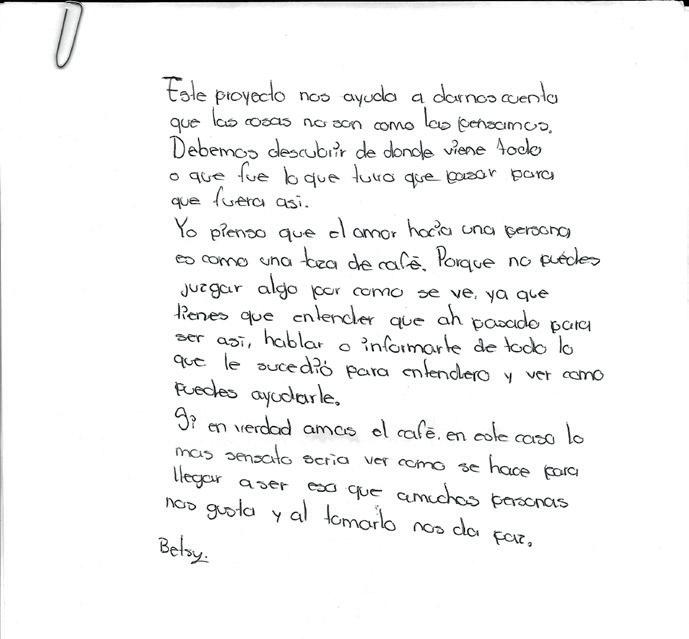 Este proyecto nos ayuda a darnos cuenta
que las cosas no son como las pensamos.
Debemos descubrir de donde viene todo
o que fue lo que tuvo que pasar para
que fuera asi.
Yo pienso que el amor hacia una persona
es como una taza de café. Porque no puedes
juzgar algo por como se ve, ya que
tienes que entender que ah pasado para
ser asi, hablar o informarte de todo lo
que le sucedió para entendero y ver como
puedes ayudarle.
Si en verdad amas el café. en este caso lo
mas sensato seria ver como se hace para
llegar a ser eso que a muchas personas
nos gusta y al tomarlo nos da paz.
Betsy.